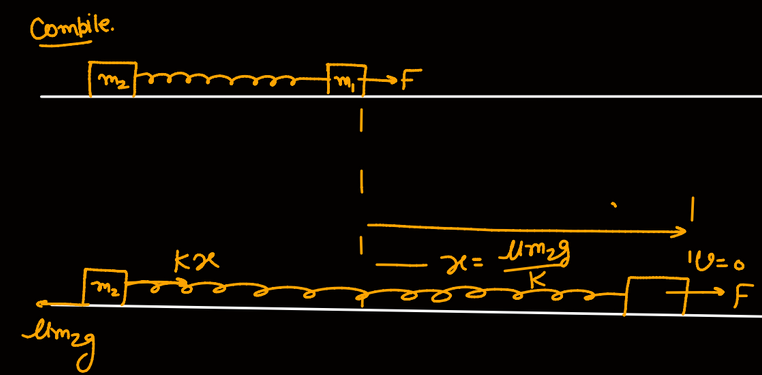 Compile.
m₂ m₁ F
Kx x = μm₂g/K v=0
m₂ F
μm₂g